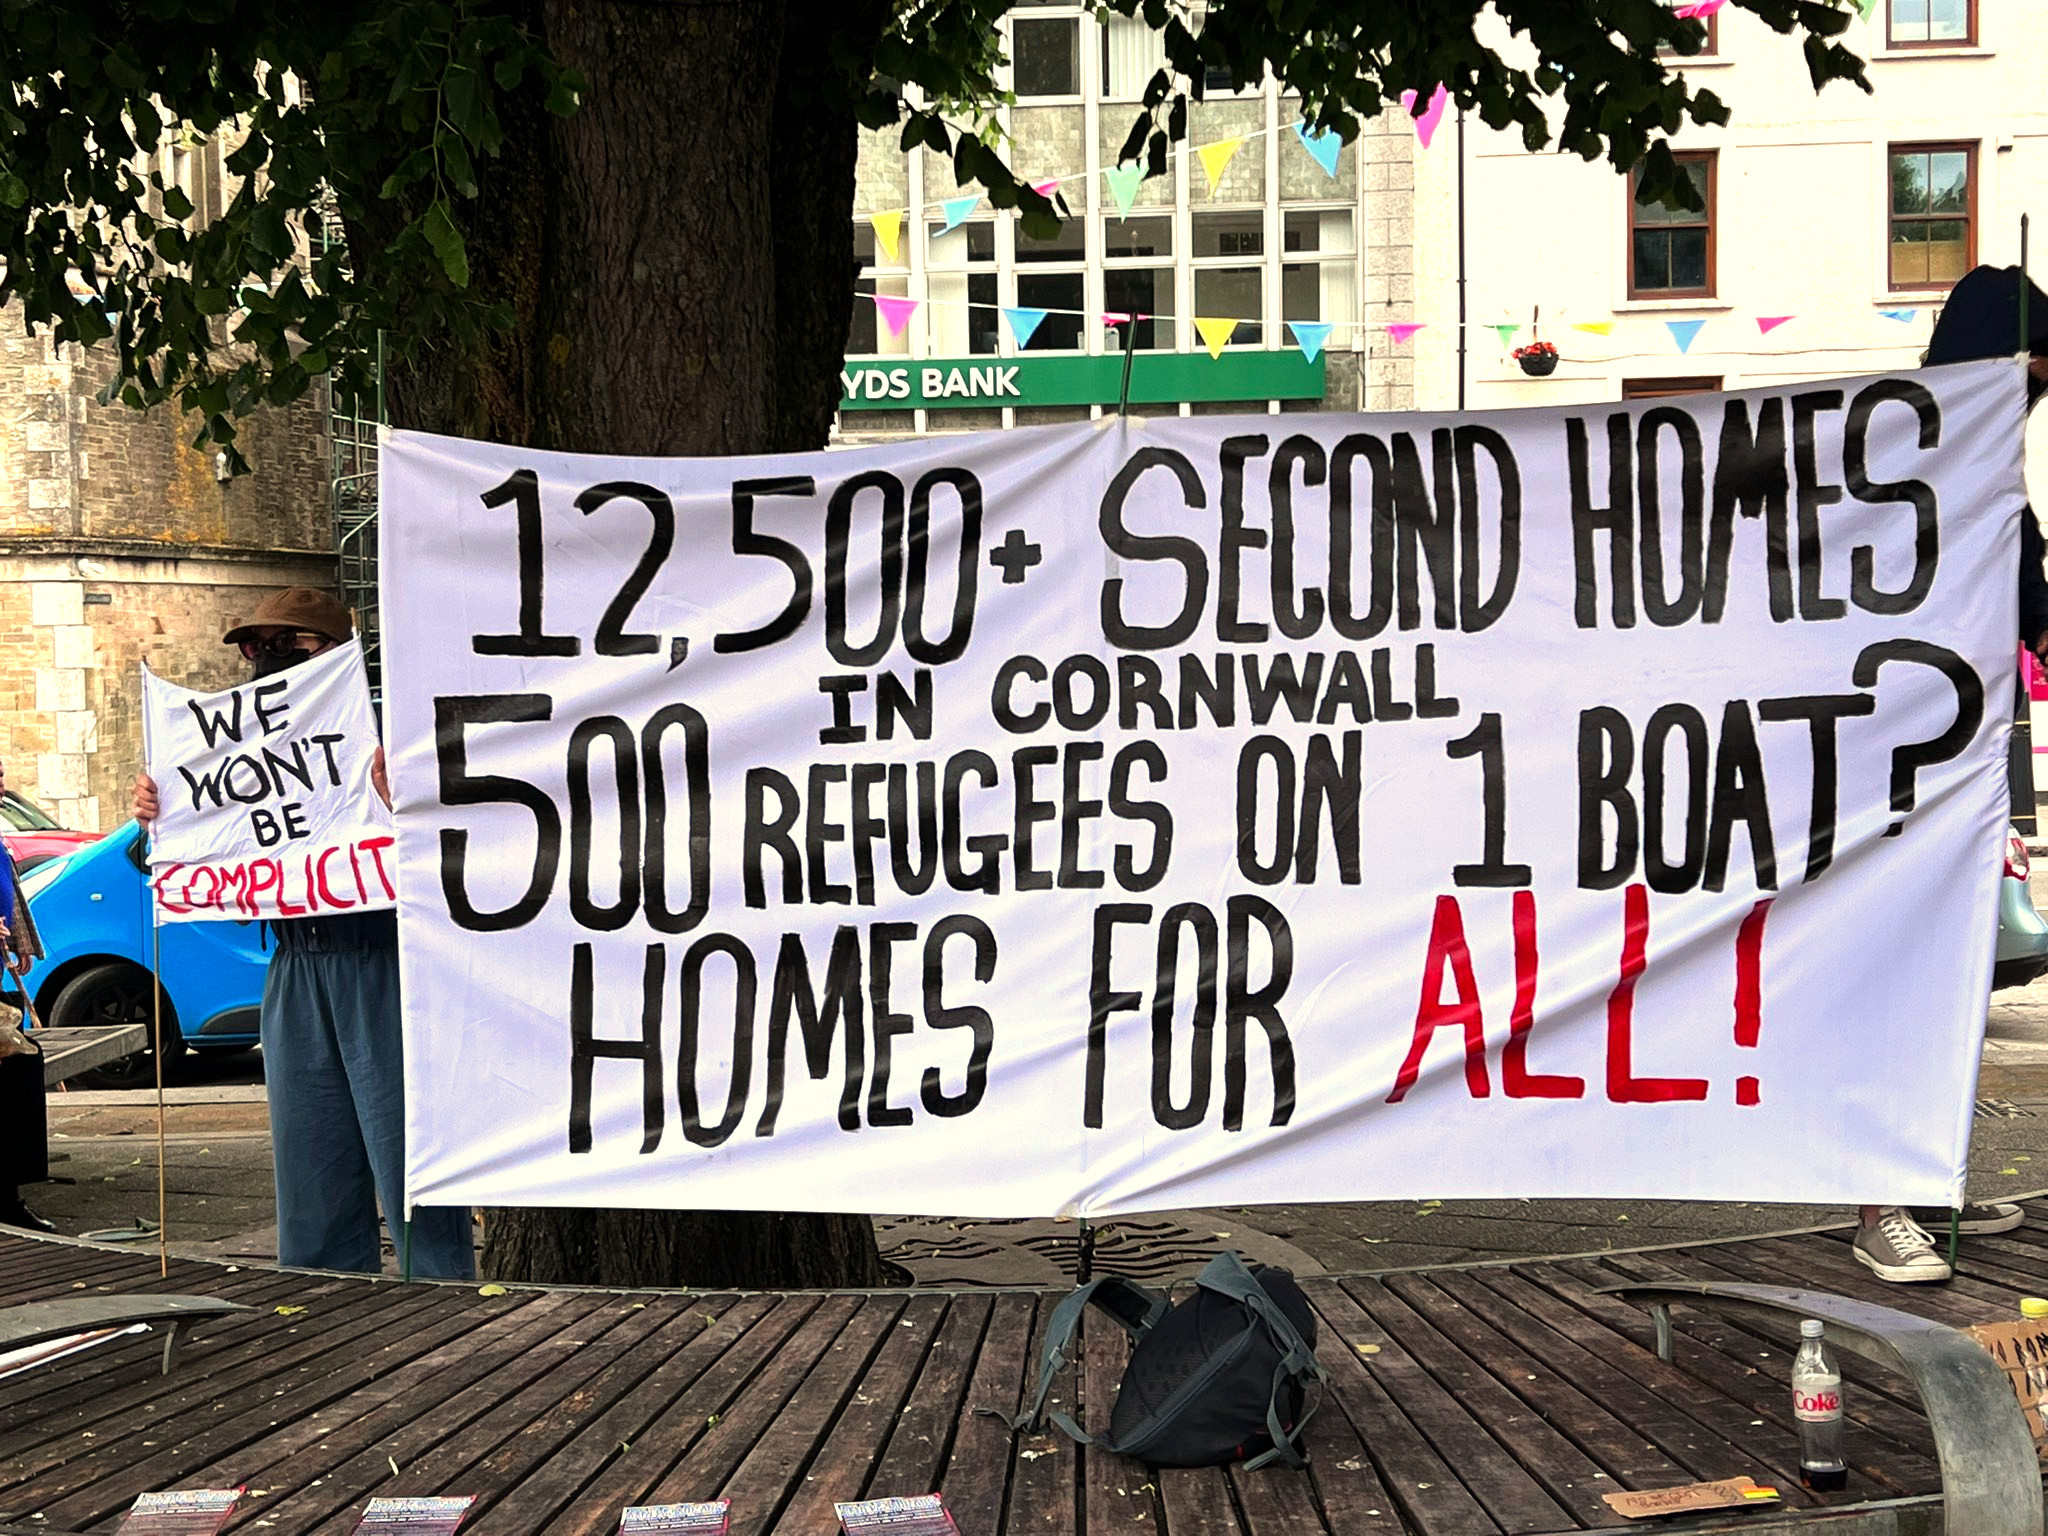 YDS BANK
12,500+ SECOND HOMES
IN CORNWALL
500 REFUGEES ON 1 BOAT?
HOMES FOR ALL!
WE
WON'T
BE
COMPLICIT
Coke